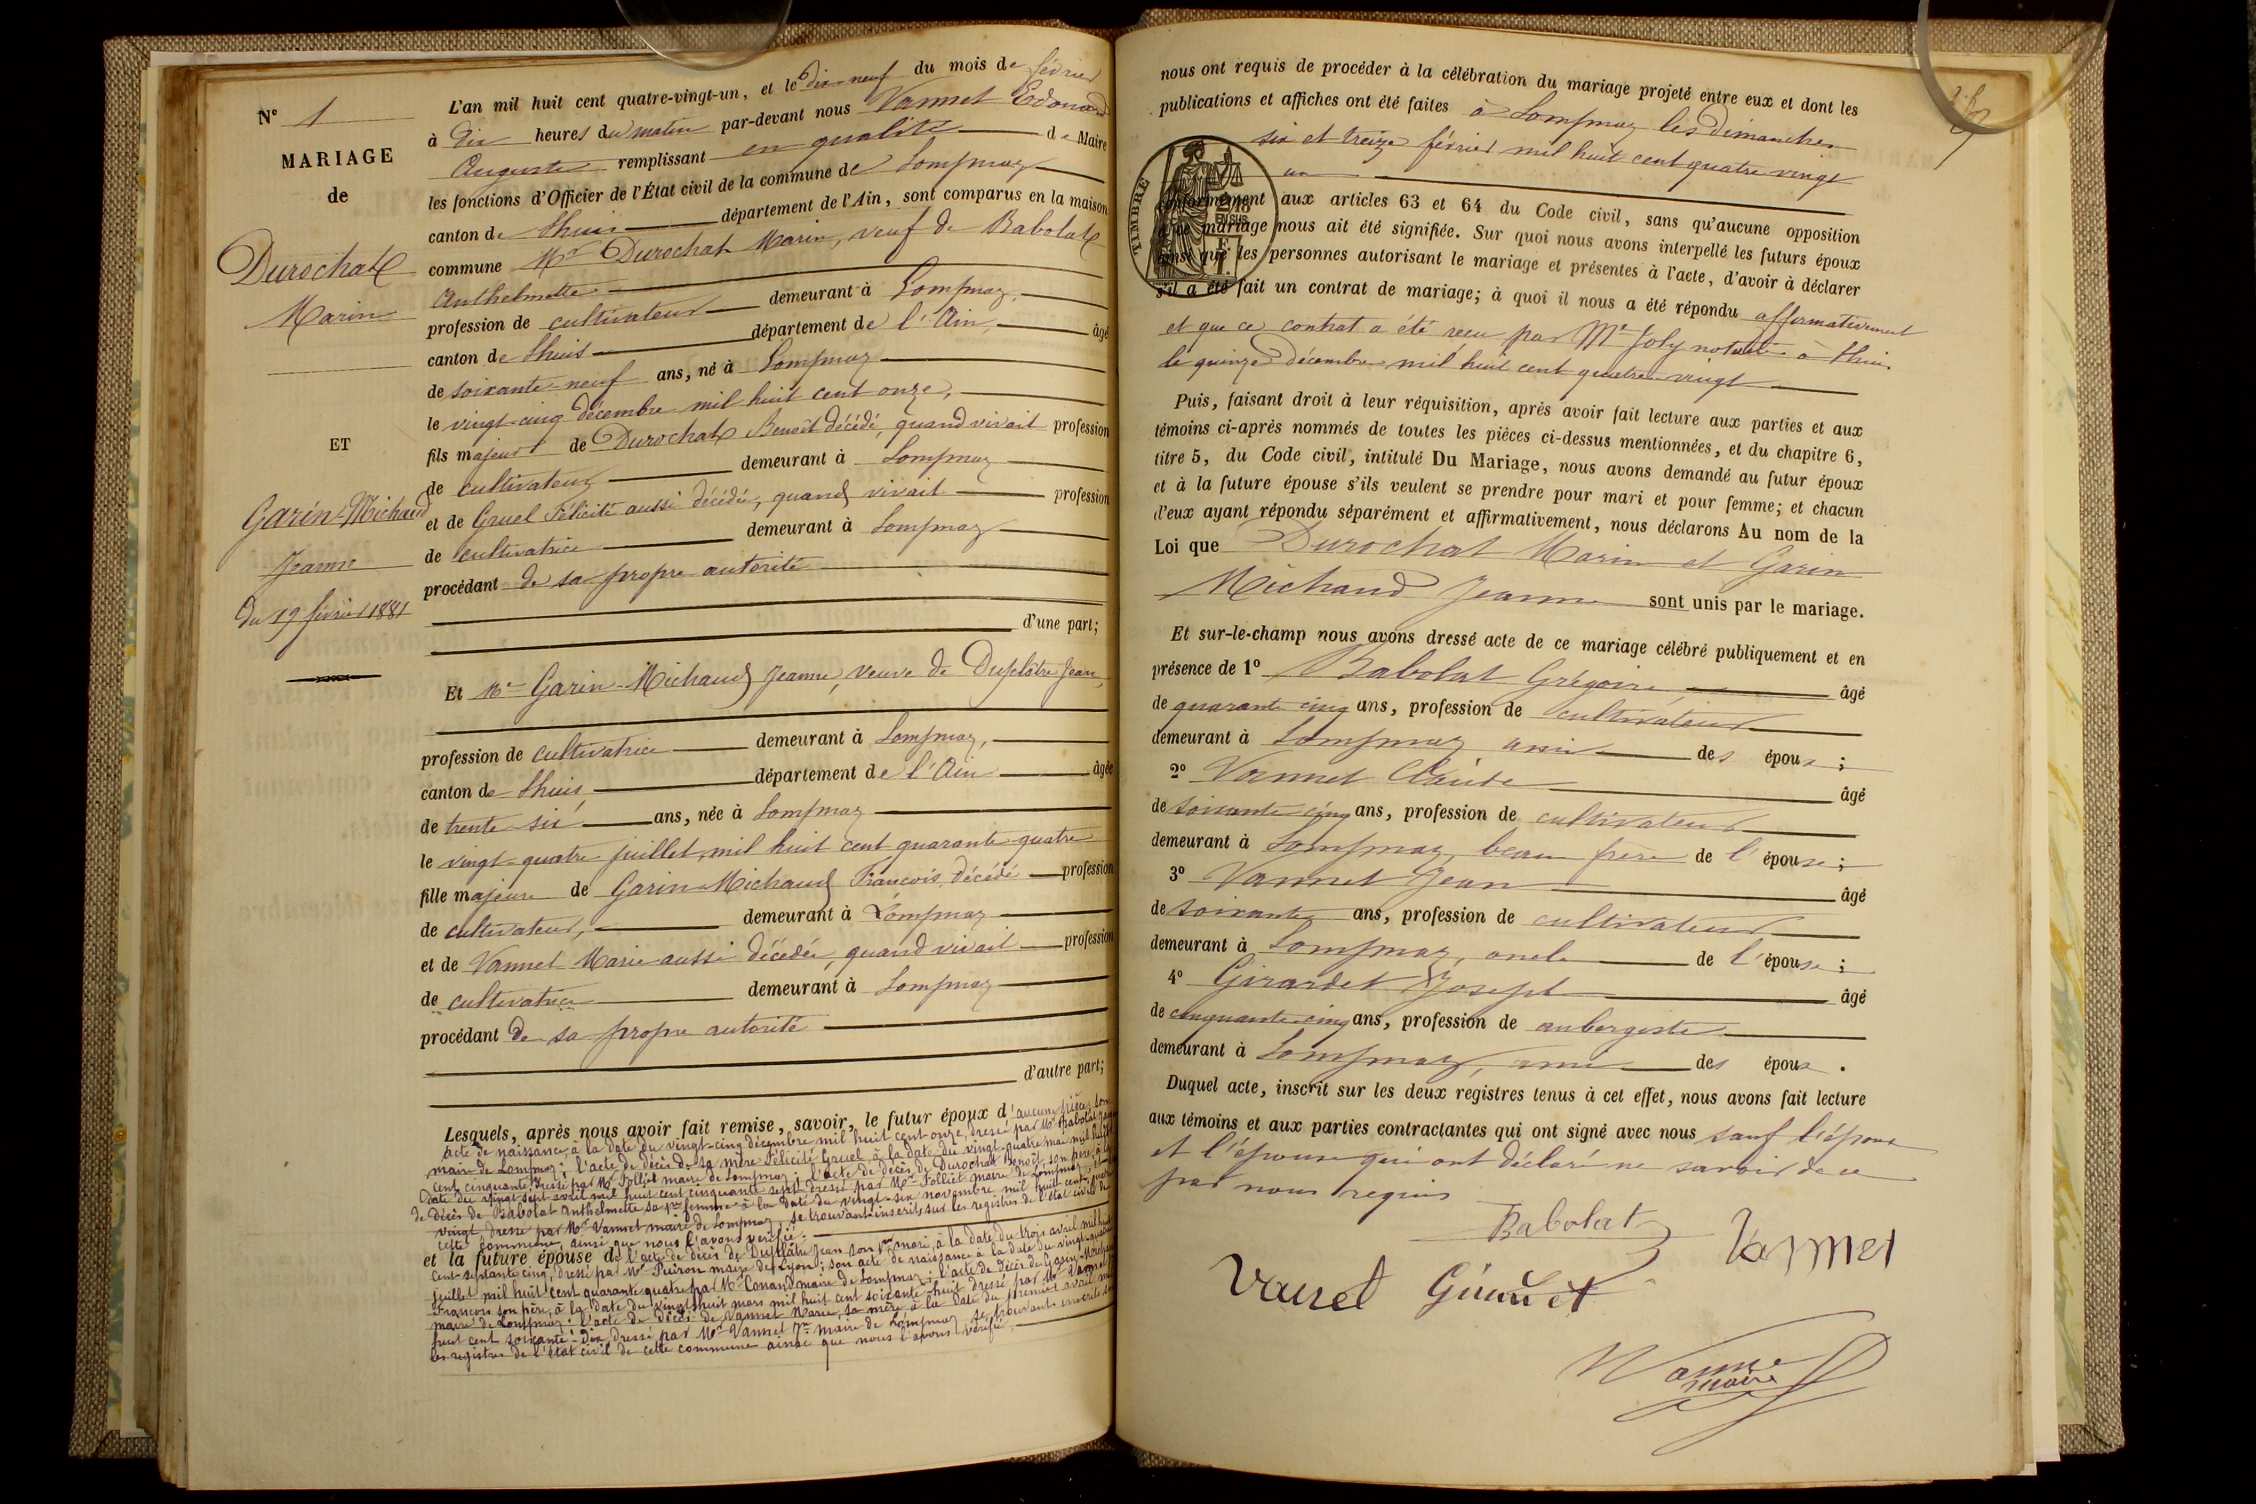 N° 1
MARIAGE
de
Durochat
Marin
ET
Garin-Michaud
Jeanne
Du 19 février 1881
L'an mil huit cent quatre-vingt-un, et le dix-neuf du mois de février
à dix heures du matin par-devant nous Vannet Edouard
Auguste remplissant en qualité de Maire
les fonctions d'Officier de l'État civil de la commune de Lompnaz
canton de Lhuis département de l'Ain, sont comparus en la maison
commune Mr Durochat Marin, veuf de Babolat
Anthelmette
profession de cultivateur demeurant à Lompnaz,
canton de Lhuis département de l'Ain, âgé
de soixante-neuf ans, né à Lompnaz
le vingt-cinq décembre mil huit cent onze,
fils majeur de Durochat Benoît décédé, quand vivait profession
de cultivateur demeurant à Lompnaz
et de Gruel Félicité aussi décédée, quand vivait profession
de cultivatrice demeurant à Lompnaz
procédant de sa propre autorité
d'une part;
Et Me Garin-Michaud Jeanne, veuve de Duplâtre Jean,
profession de cultivatrice demeurant à Lompnaz,
canton de Lhuis département de l'Ain âgée
de trente-six ans, née à Lompnaz
le vingt-quatre juillet, mil huit cent quarante-quatre
fille majeure de Garin-Michaud François, décédé profession
de cultivateur, demeurant à Lompnaz
et de Vannet Marie aussi décédée, quand vivait profession
de cultivatrice demeurant à Lompnaz
procédant de sa propre autorité
d'autre part;
Lesquels, après nous avoir fait remise, savoir, le futur époux d'aucune pièce, son
acte de naissance, à la date du vingt-cinq décembre mil huit cent onze, dressé par Mr Babolat
maire de Lompnaz; l'acte de décès de sa mère Félicité Gruel, à la date du vingt-quatre mai mil huit
cent cinquante dressé par Mr Folliet maire de Lompnaz; l'acte de décès de Durochat Benoît, son père, à la
date du vingt-sept avril mil huit cent cinquante-sept dressé par Mr Folliet maire de Lompnaz; et
de décès de Babolat Anthelmette sa 1re femme à la date du vingt-six novembre mil huit cent quatre
vingt dressé par Mr Vannet maire de Lompnaz, se trouvant inscrits sur les registres de l'état civil de
cette commune, ainsi que nous l'avons vérifié.
et la future épouse de l'acte de décès de Duplâtre Jean son 1er mari, à la date du trois avril mil huit
cent-septante cinq, dressé par Mr maire de Lyon; son acte de naissance à la date du vingt-quatre
juillet mil huit cent quarante quatre par Mr Conand maire de Lompnaz; l'acte de décès de Garin-Michaud
François son père, à la date du vingt-huit mars mil huit cent soixante-huit dressé par Mr Vannet
maire de Lompnaz; l'acte de décès de Vannet Marie, sa mère à la date du premier avril mil
huit cent soixante-dix, dressé par Mr Vannet Jn maire de Lompnaz se trouvant inscrits sur
les registres de l'état civil de cette commune ainsi que nous l'avons vérifié.
nous ont requis de procéder à la célébration du mariage projeté entre eux et dont les
publications et affiches ont été faites à Lompnaz les dimanches
six et treize février mil huit cent quatre vingt
un
TIMBRE
2/10
EN SUS
conformément aux articles 63 et 64 du Code civil, sans qu'aucune opposition
à ce mariage nous ait été signifiée. Sur quoi nous avons interpellé les futurs époux
ainsi que les personnes autorisant le mariage et présentes à l'acte, d'avoir à déclarer
s'il a été fait un contrat de mariage; à quoi il nous a été répondu affirmativement
et que ce contrat a été reçu par Me Joly notaire à Lhuis
le quinze décembre mil huit cent quatre-vingt
Puis, faisant droit à leur réquisition, après avoir fait lecture aux parties et aux
témoins ci-après nommés de toutes les pièces ci-dessus mentionnées, et du chapitre 6,
titre 5, du Code civil, intitulé Du Mariage, nous avons demandé au futur époux
et à la future épouse s'ils veulent se prendre pour mari et pour femme; et chacun
d'eux ayant répondu séparément et affirmativement, nous déclarons Au nom de la
Loi que Durochat Marin et Garin
Michaud Jeanne sont unis par le mariage.
Et sur-le-champ nous avons dressé acte de ce mariage célébré publiquement et en
présence de 1° Babolat Grégoire âgé
de quarante cinq ans, profession de cultivateur
demeurant à Lompnaz ami des époux;
2° Vannet Claude âgé
de soixante cinq ans, profession de cultivateur
demeurant à Lompnaz, beau frère de l'épouse;
3° Vannet Jean âgé
de soixante ans, profession de cultivateur
demeurant à Lompnaz, oncle de l'épouse;
4° Girardet Joseph âgé
de cinquante-cinq ans, profession de aubergiste
demeurant à Lompnaz, ami des époux.
Duquel acte, inscrit sur les deux registres tenus à cet effet, nous avons fait lecture
aux témoins et aux parties contractantes qui ont signé avec nous sauf l'époux
et l'épouse qui ont déclaré ne savoir de ce
par nous requis
Babolat
Vannet
Vannet Girardet
Vannet
maire